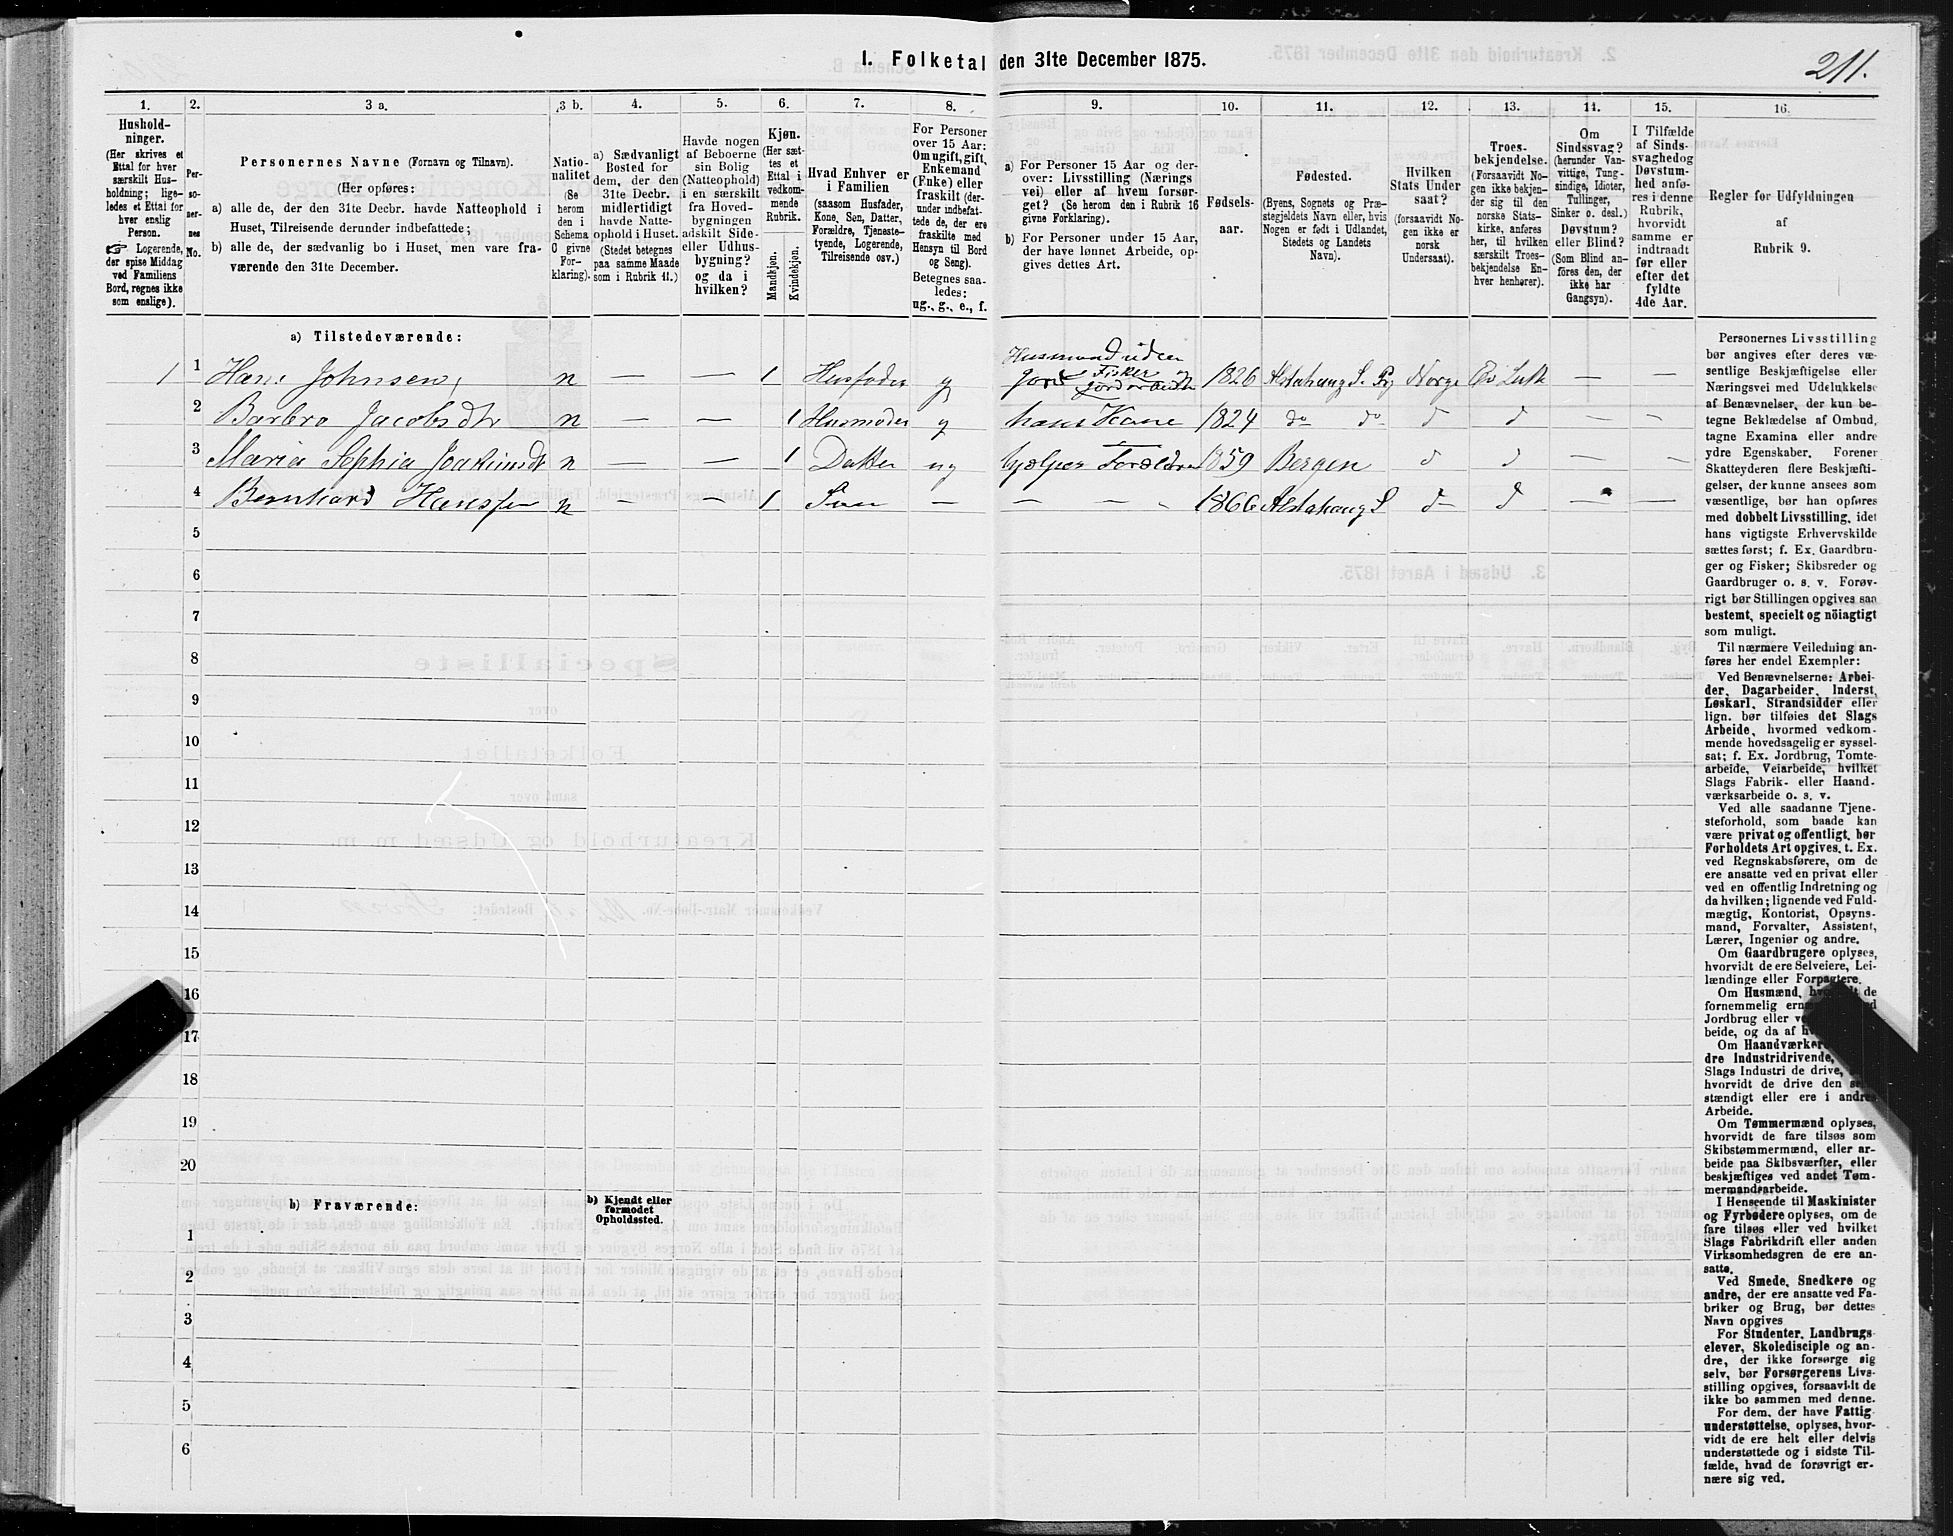 1. Folketal den 31te December 1875.
211.
1.
2.
3 a.
3 b.
4.
5.
6.
7.
8.
9.
10.
11.
12.
13.
14.
15.
16.
Hushold-
ninger.
(Her skrives et
Ettal for hver
særskilt Hus-
holdning; lige-
ledes et Ettal for
hver enslig
Person.
☞ Logerende,
der spise Middag
ved Familiens
Bord, regnes ikke
som enslige).
Per-
so-
ner-
nes
No.
Personernes Navne (Fornavn og Tilnavn).
(Her opføres:
a) alle de, der den 31te Decbr. havde Natteophold i
Huset, Tilreisende derunder indbefattede;
b) alle de, der sædvanlig bo i Huset, men vare fra-
værende den 31te December.
Natio-
nalitet
(Se
herom
den i
Schema
O givne
For-
klaring).
a) Sædvanligt
Bosted for
dem, der den
31te Decbr.
midlertidigt
havde Natte-
ophold i Huset.
(Stedet betegnes
paa samme Maade
som i Rubrik 11.)
Havde nogen
af Beboerne
sin Bolig
(Natteophold)
i en særskilt
fra Hoved-
bygningen
adskilt Side-
eller Udhus-
bygning?
og da i
hvilken?
Kjøn.
(Her sæt-
tes et
Ettal i
vedkom-
mende
Rubrik.
Mandkjøn.
Kvindekjøn.
Hvad Enhver er
i Familien
(saasom Husfader,
Kone, Søn, Datter,
Forældre, Tjeneste-
tyende, Logerende,
Tilreisende osv.)
For Personer
over 15 Aar:
Om ugift, gift,
Enkemand
(Enke) eller
fraskilt (der-
under indbefat-
tede de, der ere
fraskilte med
Hensyn til Bord
og Seng).
Betegnes saa-
ledes:
ug., g., e., f.
a) For Personer 15 Aar og der-
over: Livsstilling (Nærings
vei) eller af hvem forsør-
get? (Se herom den i Rubrik 16
givne Forklaring).
b) For Personer under 15 Aar,
der have lønnet Arbeide, op-
gives dettes Art.
Fødsels-
aar.
Fødested.
(Byens, Sognets og Præ-
stegjeldets Navn eller, hvis
Nogen er født i Udlandet,
Stedets og Landets
Navn).
Hvilken
Stats Under
saat?
(forsaavidt No-
gen ikke er
norsk
Undersaat).
Troes-
bekjendelse.
(Forsaavidt No-
gen ikke bekjen-
der sig til den
norske Stats-
kirke, anføres
her, til hvilken
særskilt Troes-
bekjendelse En-
hver henhører).
Om
Sindssvag?
(herunder Van-
vittige, Tung-
sindige, Idioter,
Tullinger,
Sinker o. desl.)
Døvstum?
eller Blind?
(Som Blind an-
føres den, der
ikke har
Gangsyn).
I Tilfælde
af Sinds-
svaghed og
Døvstum-
hed anfø-
res i denne
Rubrik,
hvorvidt
samme er
indtraadt
før eller
efter det
fyldte
4de Aar.
Regler for Udfyldningen
af
Rubrik 9.
a) Tilstedeværende:
Husmand uden
1 1 Hans Johnsen, n — — 1 Husfader g Jord Fisker og Jordarbeide 1826 Alstahaug S. Pg Norge Ev Luth — —
2 Barbro Jacobsdtr n — — 1 Husmoder g hans Kone 1824 do do d d — —
3 Maria Sophia Joakimsdt n — — 1 Datter ug hjælper Forældre 1859 Bergen d d — —
4 Bernhard Hanssen n — — 1 Søn — — — 1866 Alstahaug S d d — —
5
6
7
8
9
10
11
12
13
14
15
16
17
18
19
20
b) Fraværende:
b) Kjendt eller
formodet
Opholdssted.
1
2
3
4
5
6
Personernes Livsstilling
bør angives efter deres væ-
sentlige Beskjæftigelse eller
Næringsvei med Udelukkelse
af Benævnelser, der kun be-
tegne Beklædelse af Ombud,
tagne Examina eller andre
ydre Egenskaber. Forener
Skatteyderen flere Beskjæfti-
gelser, der kunne ansees som
væsentlige, bør han opføres
med dobbelt Livsstilling, idet
hans vigtigste Erhvervskilde
sættes først; f. Ex. Gaardbru-
ger og Fisker; Skibsreder og
Gaardbruger o. s. v. Forøv-
rigt bør Stillingen opgives saa
bestemt, specielt og nöiagtigt
som muligt.
Til nærmere Veiledning an-
føres her endel Exempler:
Ved Benævnelserne: Arbei-
der, Dagarbeider, Inderst,
Løskarl, Strandsidder eller
lign. bør tilføies det Slags
Arbeide, hvormed vedkom-
mende hovedsagelig er syssel-
sat; f. Ex. Jordbrug, Tomte-
arbeide, Veiarbeide, hvilket
Slags Fabrik- eller Haand-
værksarbeide o. s. v.
Ved alle saadanne Tjene-
steforhold, som baade kan
være privat og offentligt, bør
Forholdets Art opgives, t. Ex.
ved Regnskabsførere, om de
ere ansatte ved en privat eller
ved en offentlig Indretning og
da hvilken; lignende ved Fuld-
mægtig, Kontorist, Opsyns-
mand, Forvalter, Assistent,
Lærer, Ingeniør og andre.
Om Gaardbrugere oplyses,
hvorvidt de ere Selveiere, Lei-
lændinge eller Forpagtere.
Om Husmænd, de
fornemmelig
Jordbrug eller
beide, og da af
Om Haandværkere
dre Industridrivende,
Slags Industri de drive,
hvorvidt de drive den
stændigt eller ere i andres
Arbeide.
Om Tømmermænd oplyses,
hvorvidt de fare tilsøs som
Skibstømmermænd, eller ar-
beide paa Skibsværfter, eller
beskjæftiges ved andet Tøm-
mermandsarbeide.
I Henseende til Maskinister
og Fyrbødere oplyses, om de
fare tilsøs eller ved hvilket
Slags Fabrikdrift eller anden
Virksomhedsgren de ere an-
satte.
Ved Smede, Snedkere og
andre, der ere ansatte ved Fa-
briker og Brug, bør dettes
Navn opgives
For Studenter, Landbrugs-
elever, Skoledisciple og an-
dre, der ikke forsørge sig
selv, bør Forsørgerens Livs-
stilling opgives, forsaavidt de
ikke bo sammen med denne.
For dem, der have Fattig-
understøttelse, oplyses, hvor-
vidt de ere helt eller delvis
understøttede og i sidste Til-
fælde, hvad de forøvrigt er-
nære sig ved.